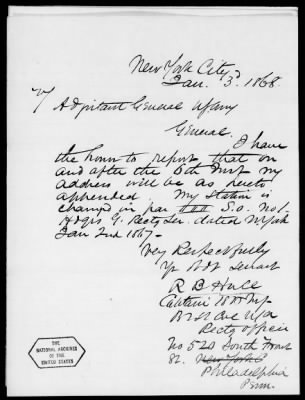 New York City
Jan. 3d. 1868
Adjutant General Army
General.
I have
the honor to report that on
and after the 6th Inst my
address will be as hereto
appended. My Station is
changed in par S.O. No 1
Hdqrs G. Rectg Ser. dated N York
Jan 2nd 1867.
Very Respectfully
Yr Obt Servant
R B Hull
Captain
Rectg officer
No 520 South Front
St. New York
Philadelphia
Penn.
THE
NATIONAL ARCHIVES
OF THE
UNITED STATES